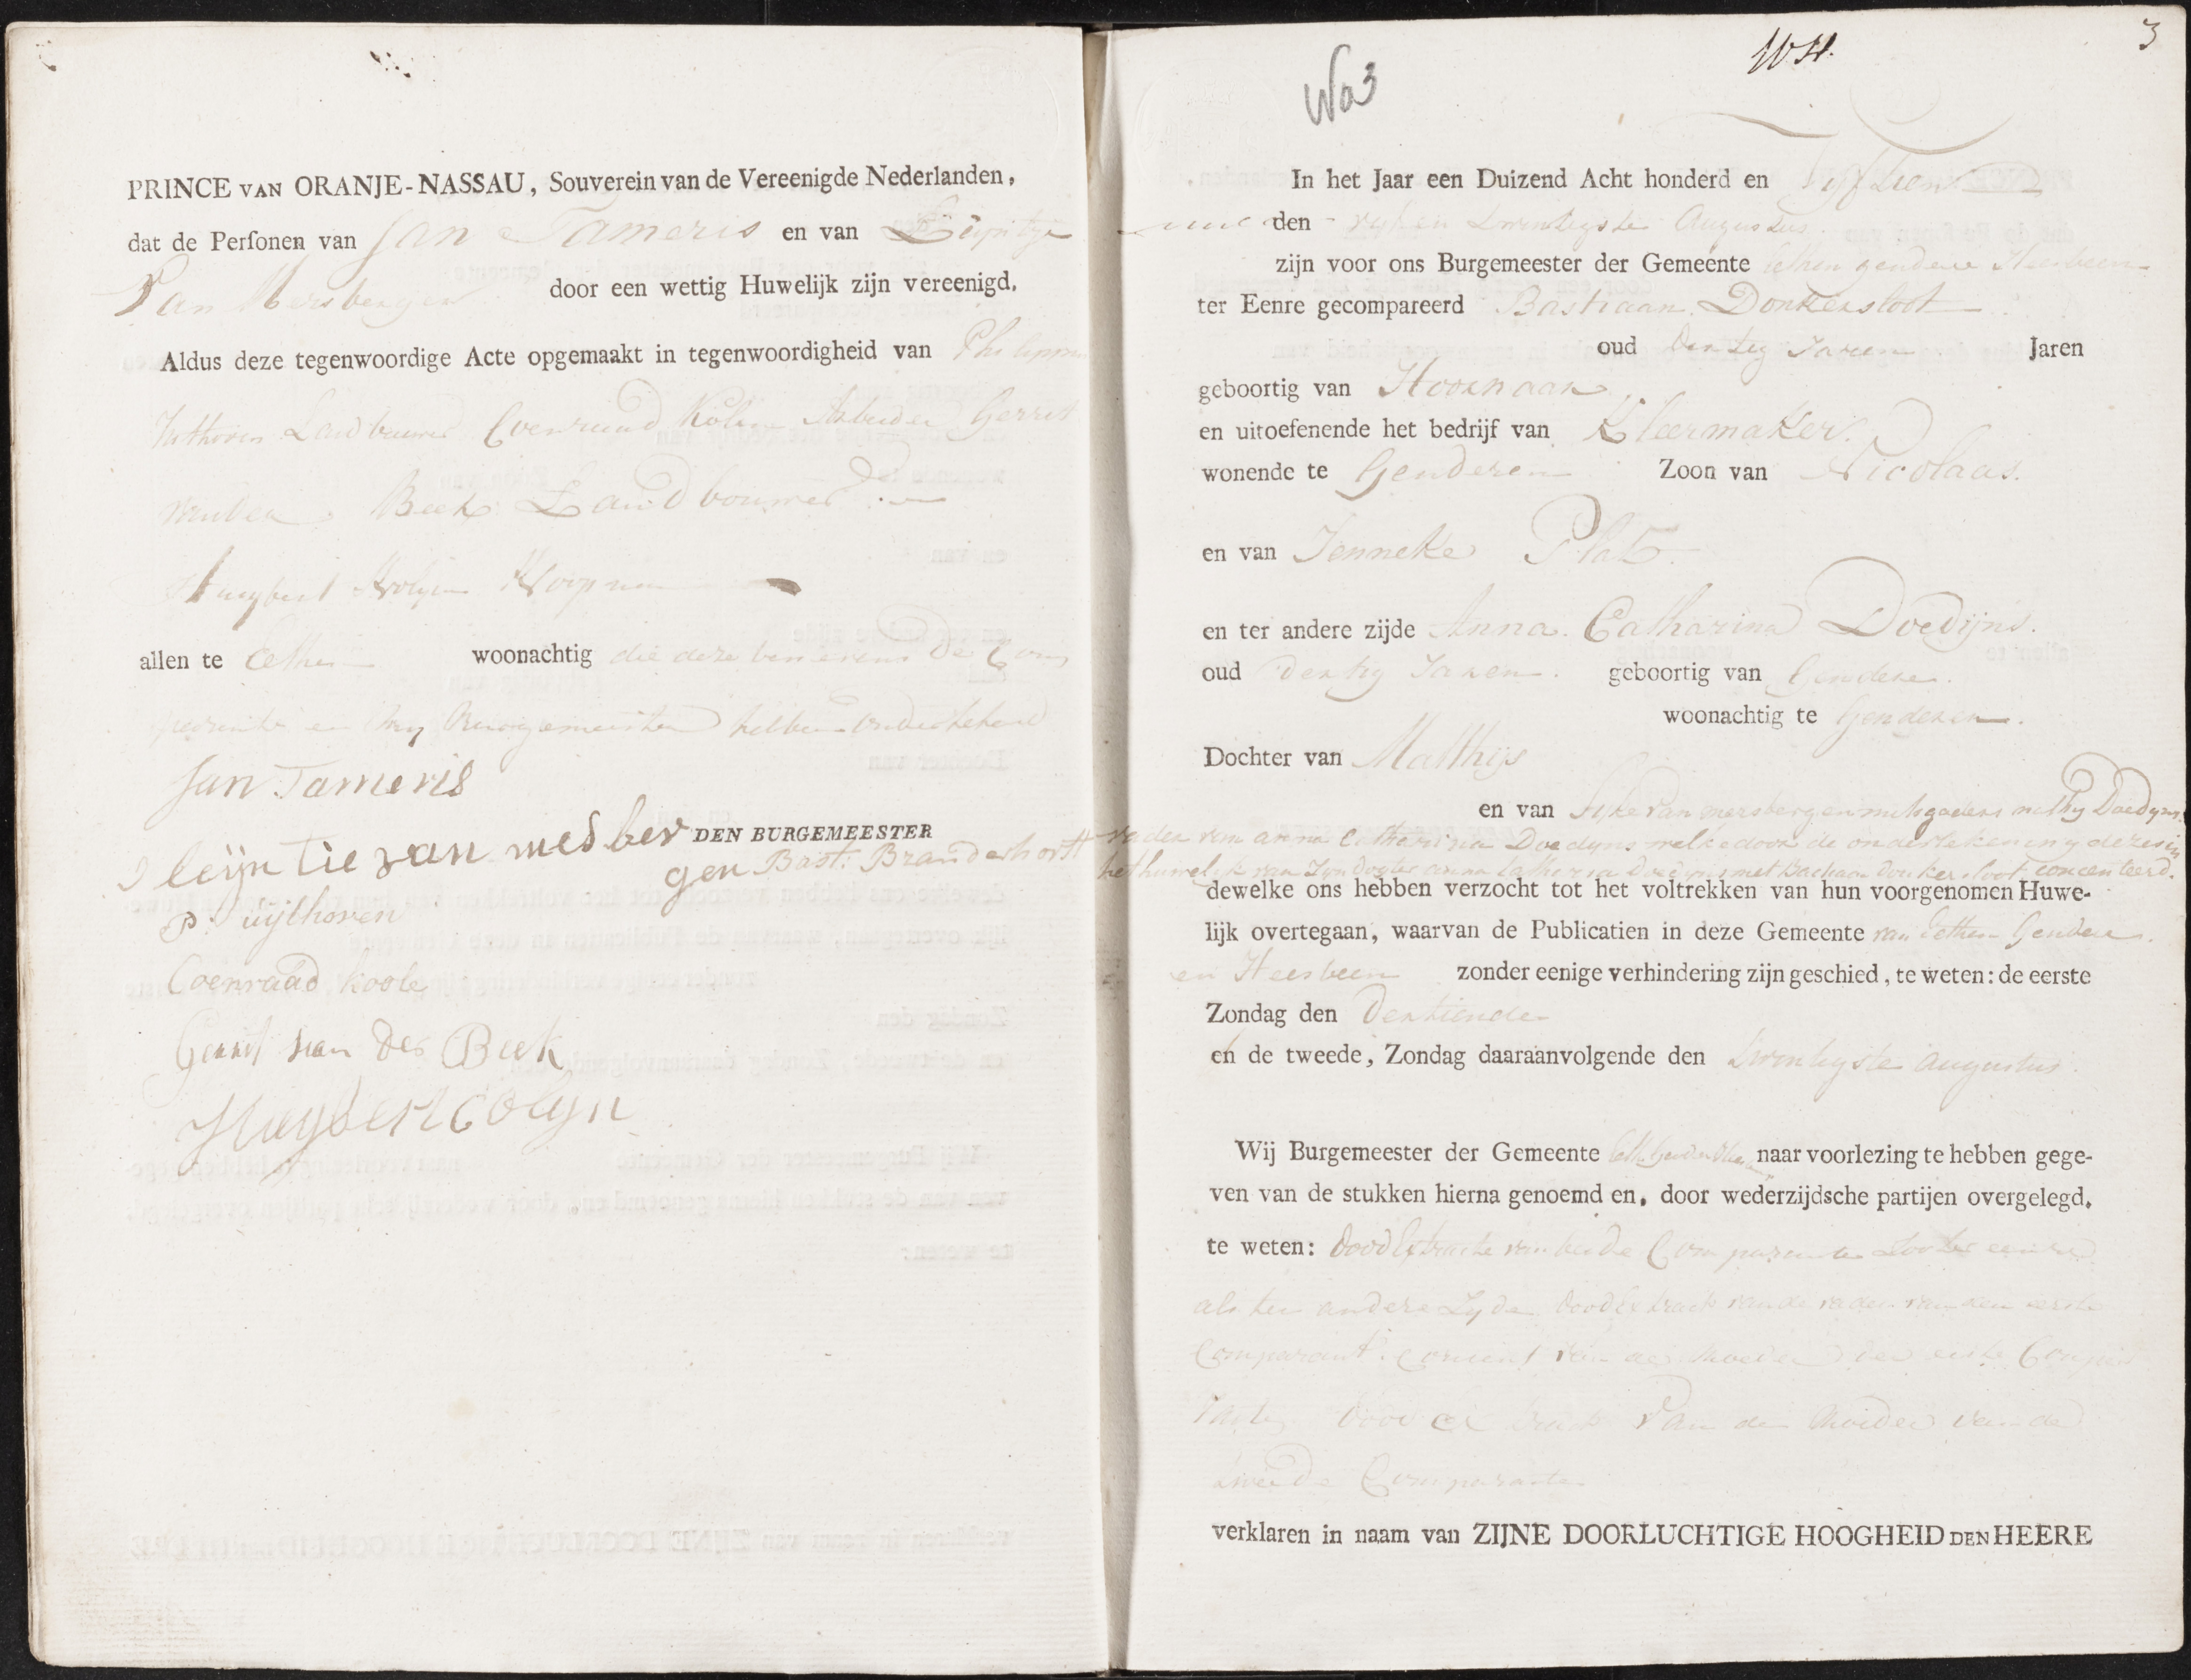 PRINCE VAN ORANJE-NASSAU, Souverein van de Vereenigde Nederlanden,
dat de Personen van Jan Tameris en van
Van Mersbergen door een wettig Huwelijk zijn vereenigd,
Aldus deze tegenwoordige Acte opgemaakt in tegenwoordigheid van
Landbouwer Coenraad Arbeider Gerrit
Beek Landbouwer
allen te Ethen woonachtig die deze benevens de Com
en my Burgemeester hebben ondertekend
Jan Tameris
van mesber DEN BURGEMEESTER
gen Bast: Branderhorst
P: uijthoven
Coenraad koole
Gerrit van der Beek
Huybert Colyn
3
No3
In het Jaar een Duizend Acht honderd en Vyftien
den vyf en Twentigste Augustus
zijn voor ons Burgemeester der Gemeente Ethen genderen Heesbeen
ter Eenre gecompareerd Bastiaan Donkersloot
oud Dertig Jaren Jaren
geboortig van Hoornaar
en uitoefenende het bedrijf van Kleermaker.
wonende te Genderen Zoon van Nicolaas.
en van Jenneke Plat
en ter andere zijde Anna. Catharina Doedijns.
oud Dertig Jaren. geboortig van Genderen.
woonachtig te Genderen.
Dochter van Matthijs
en van van mersbergen mitsgaders Doedyns
vader van anna Catharina Doedyns welke door de ondertekening dezes in
het huwelyk van Zyn dogter anna Catharina Doedyns met Bastiaan donkersloot concenteerd.
dewelke ons hebben verzocht tot het voltrekken van hun voorgenomen Huwe-
lijk overtegaan, waarvan de Publicatien in deze Gemeente van Ethen Genderen
en Heesbeen zonder eenige verhindering zijn geschied, te weten: de eerste
Zondag den Dertiende
en de tweede, Zondag daaraanvolgende den Twentigste Augustus
Wij Burgemeester der Gemeente naar voorlezing te hebben gege-
ven van de stukken hierna genoemd en, door wederzijdsche partijen overgelegd,
te weten: Doop Extracte van beide Comparante
als ter andere Zyde Dood Extract van de vader van den eerste
Comparant. Consent van de Moeder der eerste
van de Moeder van de
tweede Comparante
verklaren in naam van ZIJNE DOORLUCHTIGE HOOGHEID DEN HEERE